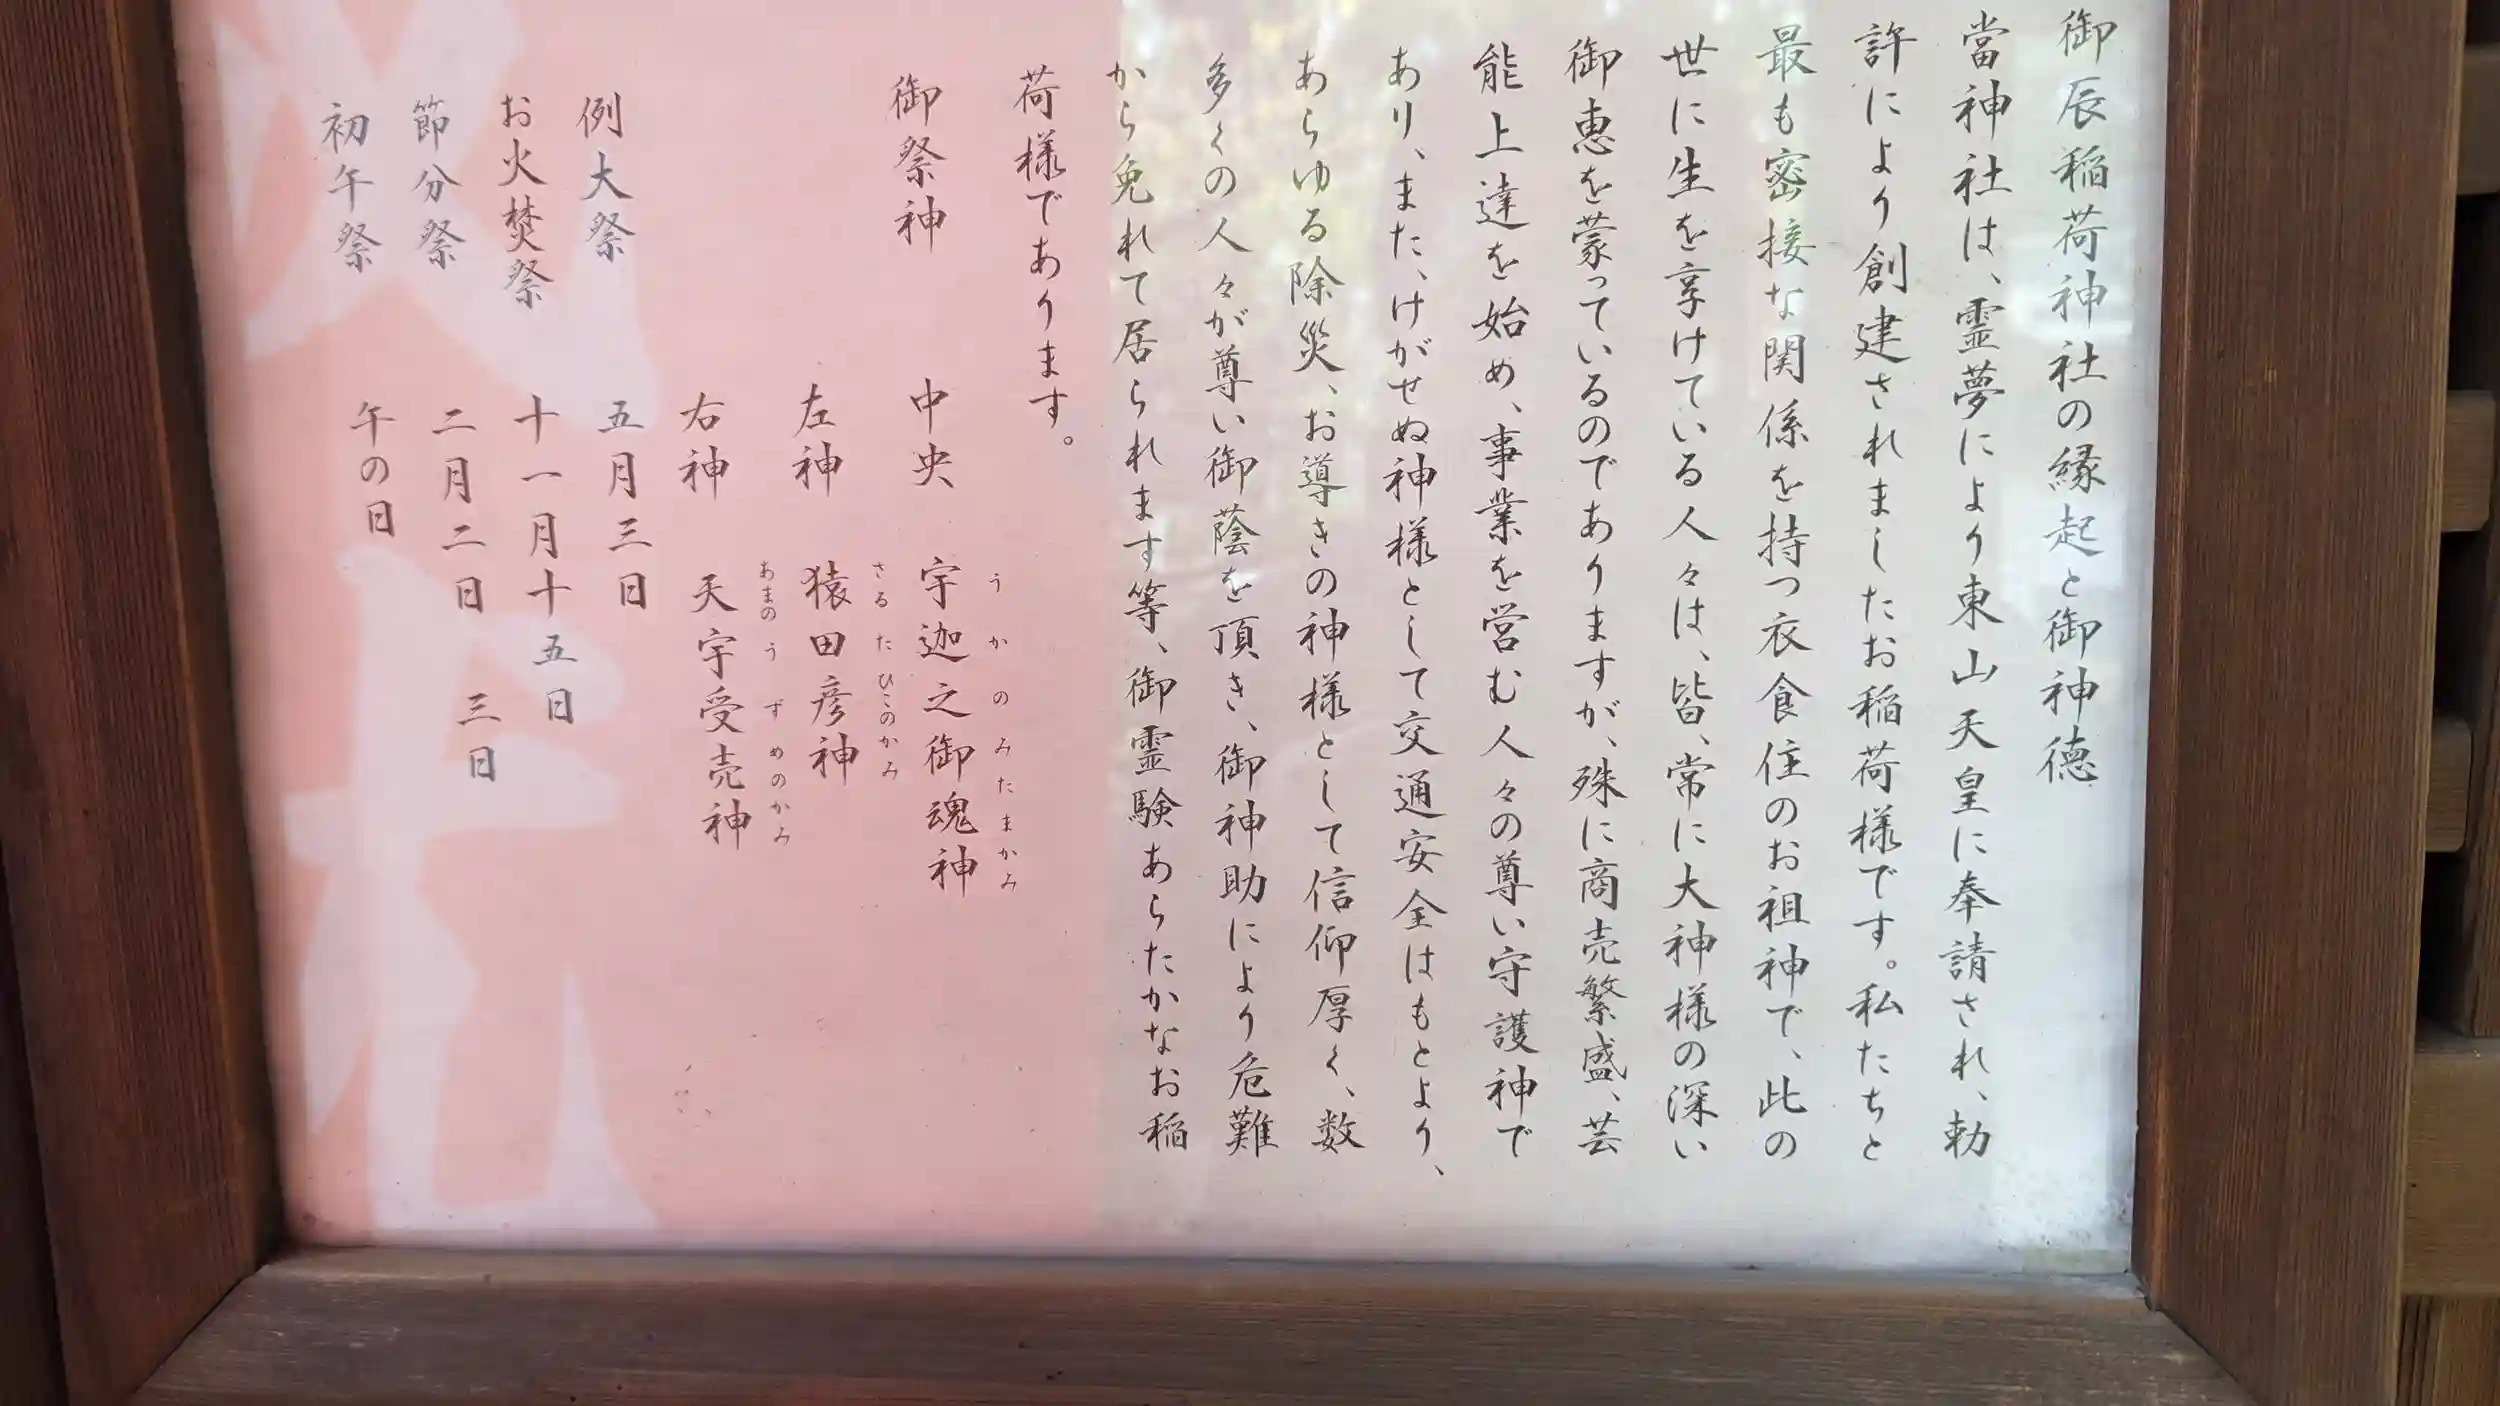 御辰稲荷神社の縁起と御神徳
當神社は、霊夢により東山天皇に奉請され、勅
許により創建されましたお稲荷様です。私たちと
最も密接な関係を持つ衣食住のお祖神で、此の
世に生を享けている人々は、皆、常に大神様の深い
御恵を蒙っているのでありますが、殊に商売繁盛、芸
能上達を始め、事業を営む人々の尊い守護神で
あり、また、けがせぬ神様として交通安全はもとより、
あらゆる除災、お導きの神様として信仰厚く、数
多くの人々が尊い御蔭を頂き、御神助により危難
から免れて居られます等、御霊験あらたかなお稲
荷様であります。
御祭神 中央 宇迦之御魂神
うかのみたまかみ
左神 猿田彦神
さるたひこのかみ
右神 天宇受売神
あまのうずめのかみ
例大祭 五月三日
お火焚祭 十一月十五日
節分祭 二月二日 三日
初午祭 午の日